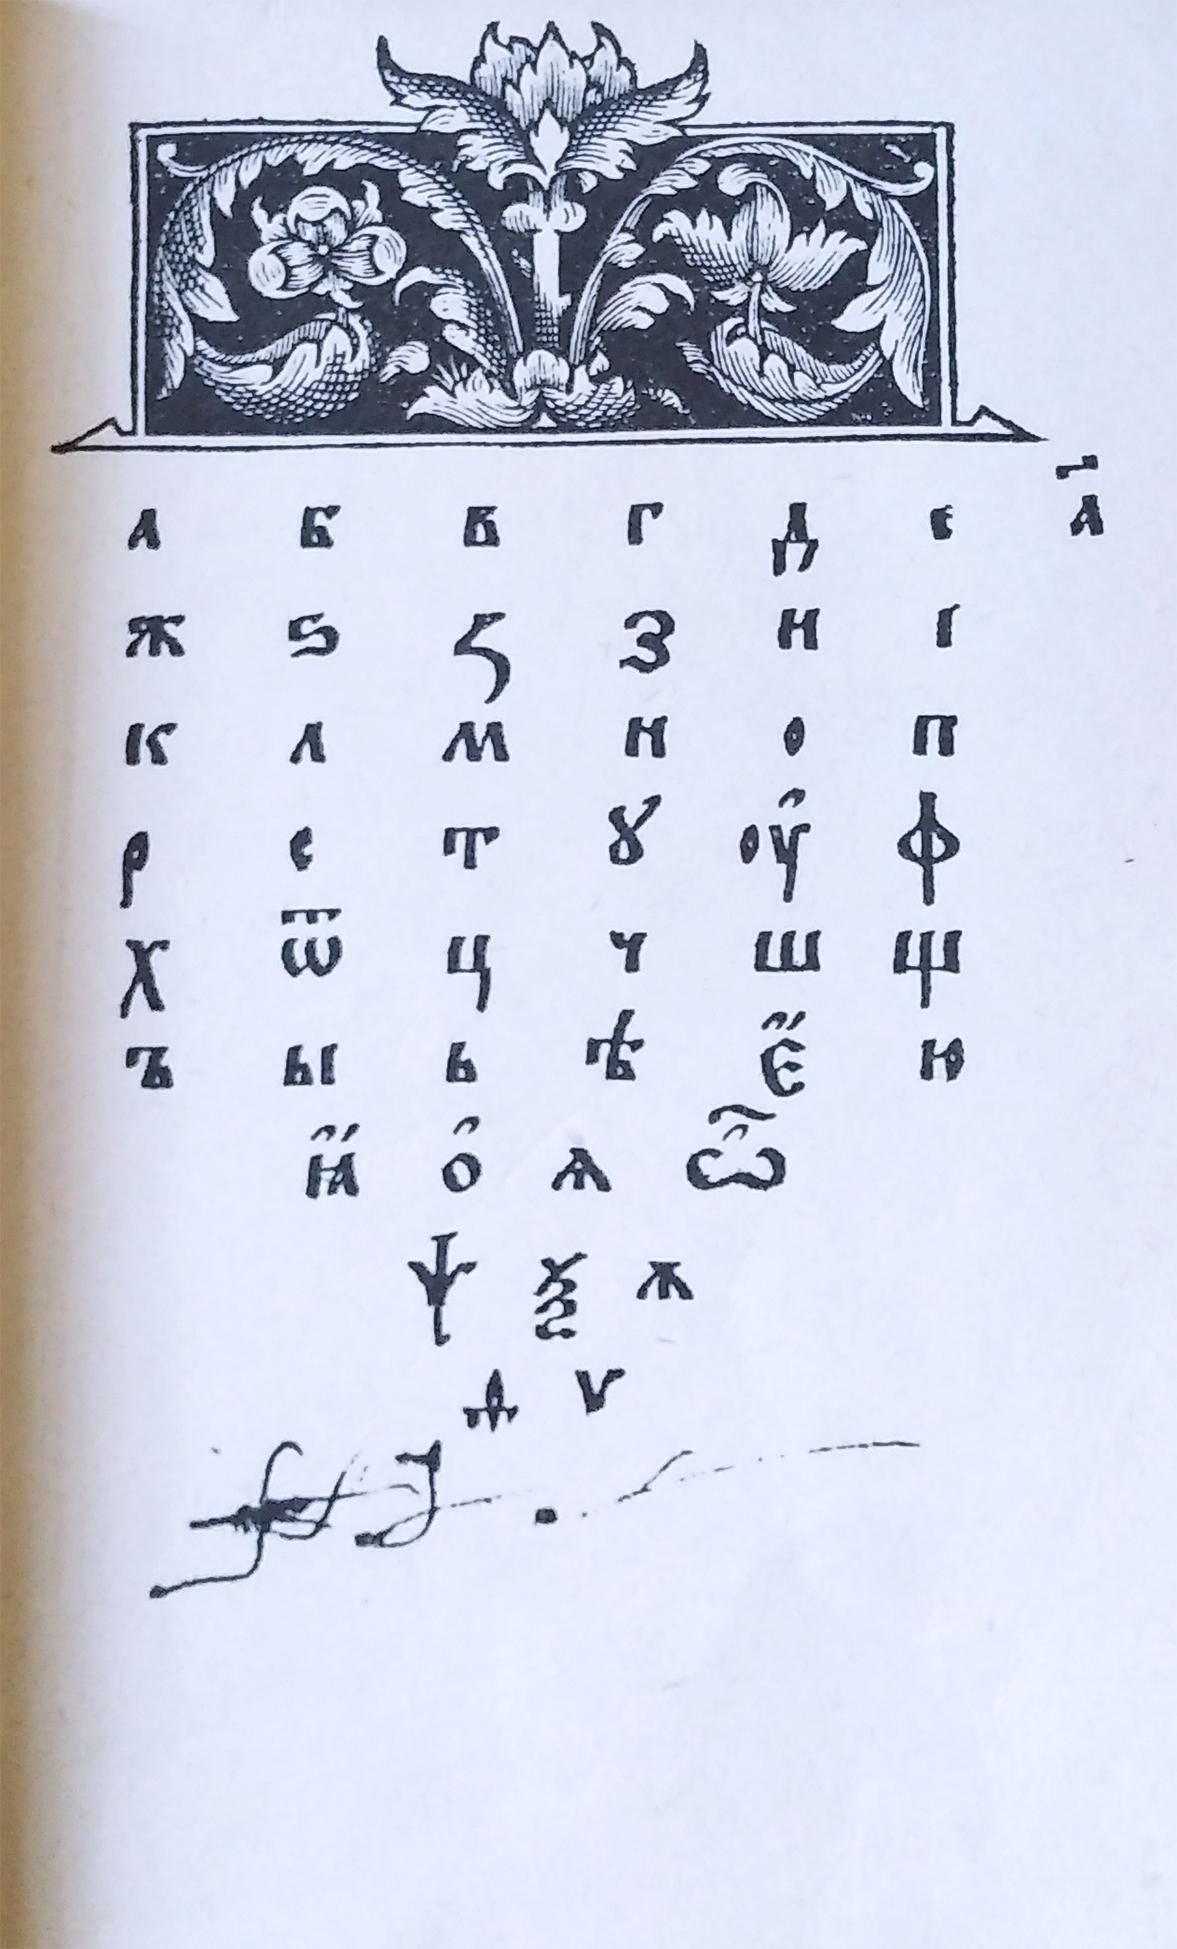 а б в г д є а҃
ж ѕ ꙁ з и і
к л м н о п
р с т ꙋ ѹ҆ ф
х ѿ ц ч ш щ
ъ ы ь ѣ є҆́ ю
ꙗ҆́ о҆ ѧ ѽ
ѱ ѯ ѫ
ѳ ѵ